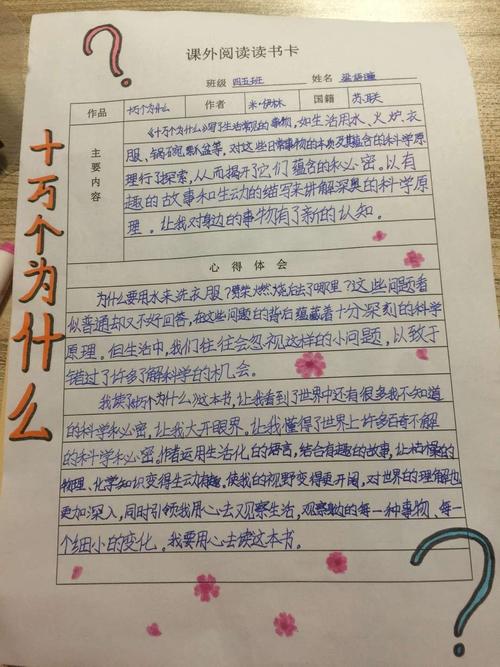 十万个为什么
课外阅读读书卡
班级 四五班 姓名
作品 十万个为什么 作者 米·伊林 国籍 苏联
主要内容
《十万个为什么》写了生活常见的事物,如生活用水、火炉、衣
服、锅碗瓢盆等,对这些日常事物的本质及其蕴含的科学原
理行了探索,从而揭开了它们蕴含的秘密。以有
趣的故事和生动的描写来讲解深奥的科学原
理。让我对身边的事物有了新的认知。
心得体会
为什么要用水来洗衣服?蜡烛燃烧后去了哪里?这些问题看
似普通却又不好回答,在这些问题的背后蕴藏着十分深刻的科学
原理。但生活中,我们往往会忽视这样的小问题,以致于
错过了许多了解科学的机会。
我读《十万个为什么》这本书,让我看到了世界中还有很多我不知道
的科学和秘密,让我大开眼界。让我懂得了世界上许多百奇不解
的科学和秘密。作者运用生活化的语言,结合有趣的故事,让枯燥的
物理、化学知识变得生动有趣,使我的视野变得更开阔,对世界的理解也
更加深入,同时引领我用心去观察生活,观察身边的每一种事物、每一
个细小的变化。我要用心去读这本书。